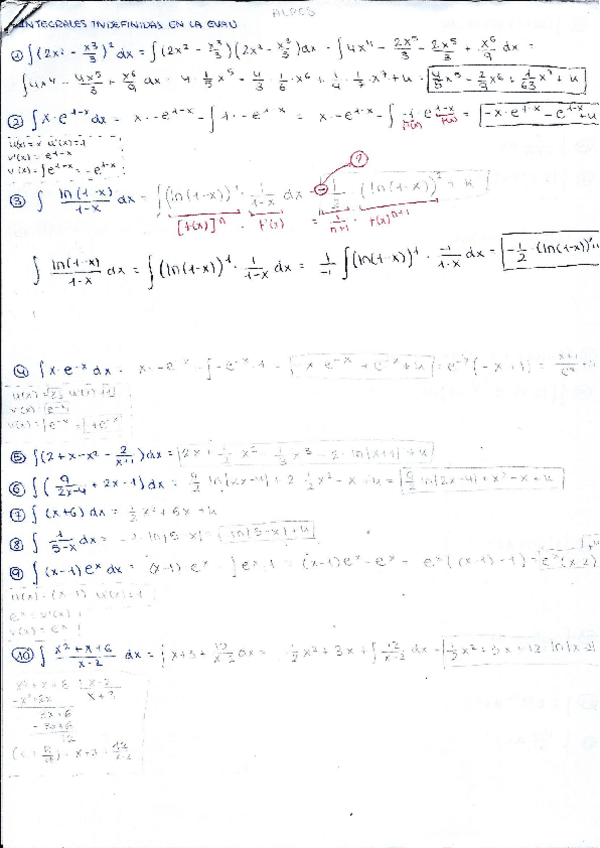 ALPES
INTEGRALES INDEFINIDAS EN LA EVAU
① ∫(2x² - x³/3)² dx = ∫(2x² - x³/3)(2x² - x³/3)dx = ∫4x⁴ - 2x⁵/3 - 2x⁵/3 + x⁶/9 dx =
∫4x⁴ - 4x⁵/3 + x⁶/9 dx = 4 · 1/5 x⁵ - 4/3 · 1/6 · x⁶ + 1/9 · 1/7 · x⁷ + k = 4/5 x⁵ - 2/9 x⁶ + 1/63 x⁷ + k
② ∫x·e^(1-x) dx = x · -e^(1-x) - ∫1 · -e^(1-x) = x · -e^(1-x) - ∫ -1 e^(1-x) = -x·e^(1-x) - e^(1-x) + k
f'(x) f(x)
u(x) = x u'(x) = 1
v'(x) = e^(1-x)
v(x) = ∫e^(1-x) = -e^(1-x)
③ ∫ ln(1-x)/(1-x) dx = ∫(ln(1-x))¹ · 1/(1-x) dx = - 1/2 · (ln(1-x))² + k
[f(x)]ⁿ · f'(x) = 1/(n+1) · f(x)ⁿ⁺¹
∫ ln(1-x)/(1-x) dx = ∫(ln(1-x))¹ · 1/(1-x) dx = 1/-1 ∫(ln(1-x))¹ · -1/(1-x) dx = -1/2 · (ln(1-x))²
④ ∫x·e^(-x) dx = x · -e^(-x) - ∫-e^(-x) · 1 = -x e^(-x)
⑤ ∫(2 + x - x² - 2/(x+1))dx = 2x + 1/2 x² - 1/3 x³ - 2 · ln|x+1| + k
⑥ ∫(9/(2x-4) + 2x - 1)dx = 9/2 ln|2x-4| + 2 · 1/2 x² - x + k = 9/2 ln|2x-4| + x² - x + k
⑦ ∫(x+6) dx = 1/2 x² + 6x + k
⑧ ∫ 1/(5-x) dx =
⑨ ∫(x-1)eˣ dx = (x-1)·eˣ - ∫eˣ·1 = (x-1)eˣ - eˣ = eˣ((x-1) - 1) = eˣ(x-2)
u(x) = (x-1) u'(x) = 1
eˣ = v'(x)
v(x) = eˣ
⑩ ∫ (x² + x + 6)/(x-2) dx = ∫x + 3 + 12/(x-2) dx = 1/2 x² + 3x + ∫12/(x-2) dx = 1/2 x² + 3x + 12 · ln|x-2|
x² + x + 6 x-2
-x² + 2x x+3
3x + 6
-3x + 6
12